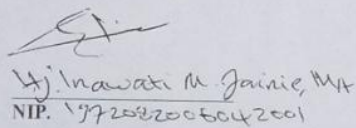 Hj. Inawati M. Jainie, MA
NIP. 1972022006042001